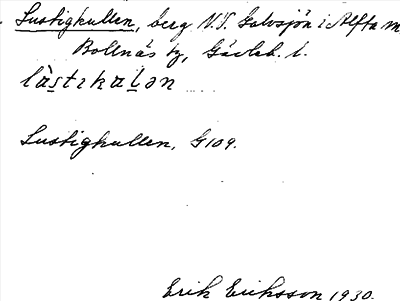 Lustigkullen, berg N.V. Galvsjön i Alfta
Bollnäs tg, Gävleb. l.
lùstikaḷən
Lustigkullen, G109.
Erik Eriksson 1930.